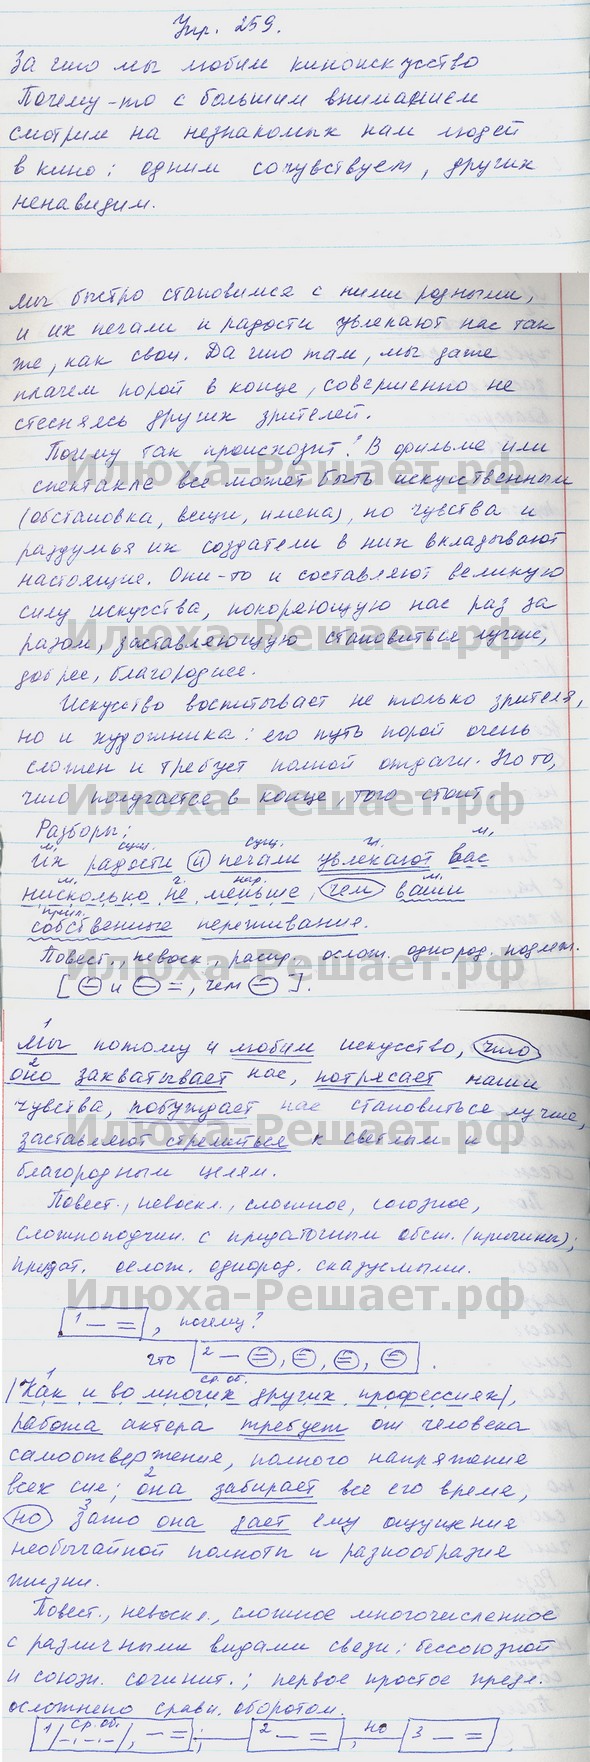 Упр. 259.
За что мы любим киноискусство
Почему-то с большим вниманием
смотрим на незнакомых нам людей
в кино: одним сочувствуем, других
ненавидим.
Мы быстро становимся с ними родными,
и их печали и радости увлекают нас так
же, как свои. Да что там, мы даже
плачем порой в конце, совершенно не
стесняясь других зрителей.
Почему так происходит? В фильме или
спектакле все может быть искусственным
Илюха-Решает.рф
(обстановка, вещи, имена), но чувства и
раздумья их создатели в них вкладывают
настоящие. Они-то и составляют великую
силу искусства, покоряющую нас раз за
разом, заставляющую становиться лучше,
Илюха-Решает.рф
добрее, благороднее.
Искусство воспитывает не только зрителя,
но и художника: его путь порой очень
сложен и требует полной отдачи. Но то,
что получается в конце, того стоит.
Илюха-Решает.рф
Разборы:
м. сущ. сущ. гл. м.
Их радости и печали увлекают вас
м. г. нар. м.
нисколько не меньше, чем ваши
прил.
собственные переживания.
Повест., невоскл., расп., ослож. однород. подлеж.
Илюха-Решает.рф
[ и = , чем ].
1
Мы потому и любим искусство, что
2
оно захватывает нас, потрясает наши
чувства, побуждает нас становиться лучше,
Илюха-Решает.рф
заставляют стремиться к светлым и
благородным целям.
Повест., невоскл., сложное, союзное,
сложноподчин. с придаточным обст. (причины);
придат. ослож. однород. сказуемыми.
Илюха-Решает.рф
1 — = , почему?
что 2 — = , = , = , = .
1 ср. об.
|Как и во многих других профессиях|,
работа актера требует от человека
самоотвержения, полного напряжения
Илюха-Решает.рф
2
всех сил; она забирает все его время,
3
но зато она дает ему ощущение
необычайной полноты и разнообразия
жизни.
Повест., невоскл., сложное многочисленное
с различными видами связи: бессоюзной
Илюха-Решает.рф
и союзн. сочинит.; первое простое предл.
осложнено сравн. оборотом.
1 | ср. об. |, — = ; 2 — = , но 3 — = .